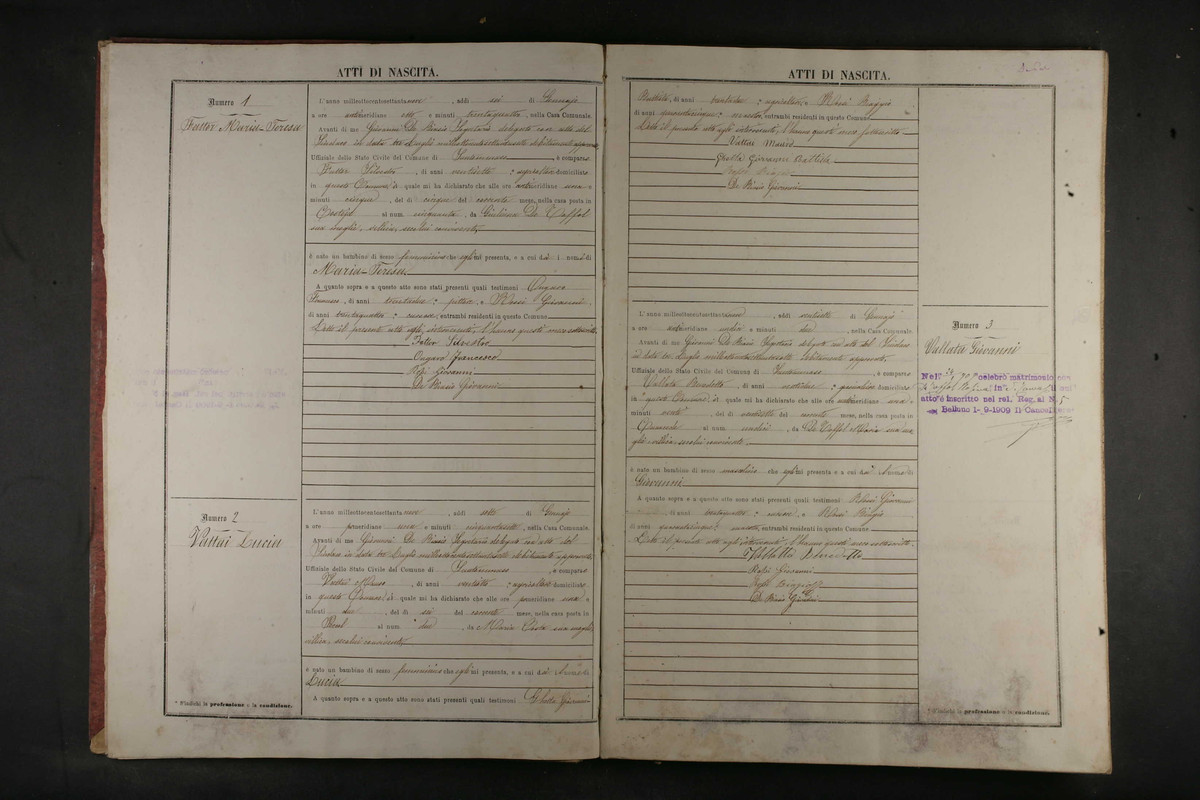 ATTI DI NASCITA.
Numero 1
Fattor Maria-Teresa
L'anno milleottocentosettantanove, addì sei di Gennajo
a ore antimeridiane otto e minuti trentaquattro, nella Casa Comunale.
Avanti di me Giovanni De Biasio Segretario delegato con atto del
Sindaco in data tre Luglio milleottocentosettantotto debitamente approvato
Uffiziale dello Stato Civile del Comune di, è comparso
Fattor Silvestro, di anni ventisette, agricoltore domiciliato
in questo Comune, il quale mi ha dichiarato che alle ore antimeridiane una e
minuti cinque, del dì cinque del corrente mese, nella casa posta in
al num. cinquanta, da Giuliana De Toffol
sua moglie, villica, seco lui convivente,
è nato un bambino di sesso femminino che egli mi presenta, e a cui dà i nomi di
Maria-Teresa
A quanto sopra e a questo atto sono stati presenti quali testimoni Ongaro
Francesco, di anni trentadue, pittore, e Rossi Giovanni,
di anni trentaquattro, entrambi residenti in questo Comune
Letto il presente atto agli intervenuti, l'hanno questi meco sottoscritto
Fattor Silvestro
Ongaro Francesco
Rossi Giovanni
De Biasio Giovanni
Numero 2
Vattai Lucia
L'anno milleottocentosettantanove, addì sette di Gennajo
a ore pomeridiane una e minuti cinquantasette, nella Casa Comunale.
Avanti di me Giovanni De Biasio Segretario delegato con atto del
Sindaco in data tre Luglio milleottocentosettantotto debitamente approvato
Uffiziale dello Stato Civile del Comune di, è comparso
Vattai Mauro, di anni ventotto, agricoltore domiciliato
in questo Comune, il quale mi ha dichiarato che alle ore pomeridiane una e
minuti due, del dì sei del corrente mese, nella casa posta in
al num. due, da Maria sua moglie
villica, seco lui convivente,
è nato un bambino di sesso femminino che egli mi presenta, e a cui dà il nome di
Lucia
A quanto sopra e a questo atto sono stati presenti quali testimoni Ghetta Giovanni
* S'indichi la professione o la condizione.
ATTI DI NASCITA.
Battista, di anni, agricoltore, e Rossi Biaggio
di anni quarantacinque, entrambi residenti in questo Comune
Letto il presente atto agli intervenuti, l'hanno questi meco sottoscritto
Vattai Mauro
Ghetta Giovanni Battista
Rossi Biagio
De Biasio Giovanni
Numero 3
Vallata Giovanni
L'anno milleottocentosettantanove, addì ventisette di Gennajo
a ore antimeridiane undici e minuti due, nella Casa Comunale.
Avanti di me Giovanni De Biasio Segretario delegato con atto del Sindaco
in data tre Luglio milleottocentosettantotto debitamente approvato,
Uffiziale dello Stato Civile del Comune di, è comparso
Vallata Benedetto, di anni ventisei, domiciliato
in questo Comune, il quale mi ha dichiarato che alle ore antimeridiane una e
minuti venti, del dì ventisette del corrente mese, nella casa posta in
al num. undici, da De Toffol Maria sua mo-
glie, villica, seco lui convivente
è nato un bambino di sesso mascolino che egli mi presenta, e a cui dà il nome di
Giovanni
A quanto sopra e a questo atto sono stati presenti quali testimoni Rossi Giovanni
di anni trentaquattro, e Rossi Biagio
di anni quarantacinque, entrambi residenti in questo Comune
Letto il presente atto agli intervenuti l'hanno questi meco sottoscritto.
Vallatta Benedetto
Rossi Giovanni
Rossi Biagio
De Biasio Giovanni
celebrò matrimonio con
atto è inscritto nel rel. Reg. al N. 5
Belluno 1-9-1909 Il Cancelliere
* S'indichi la professione o la condizione.